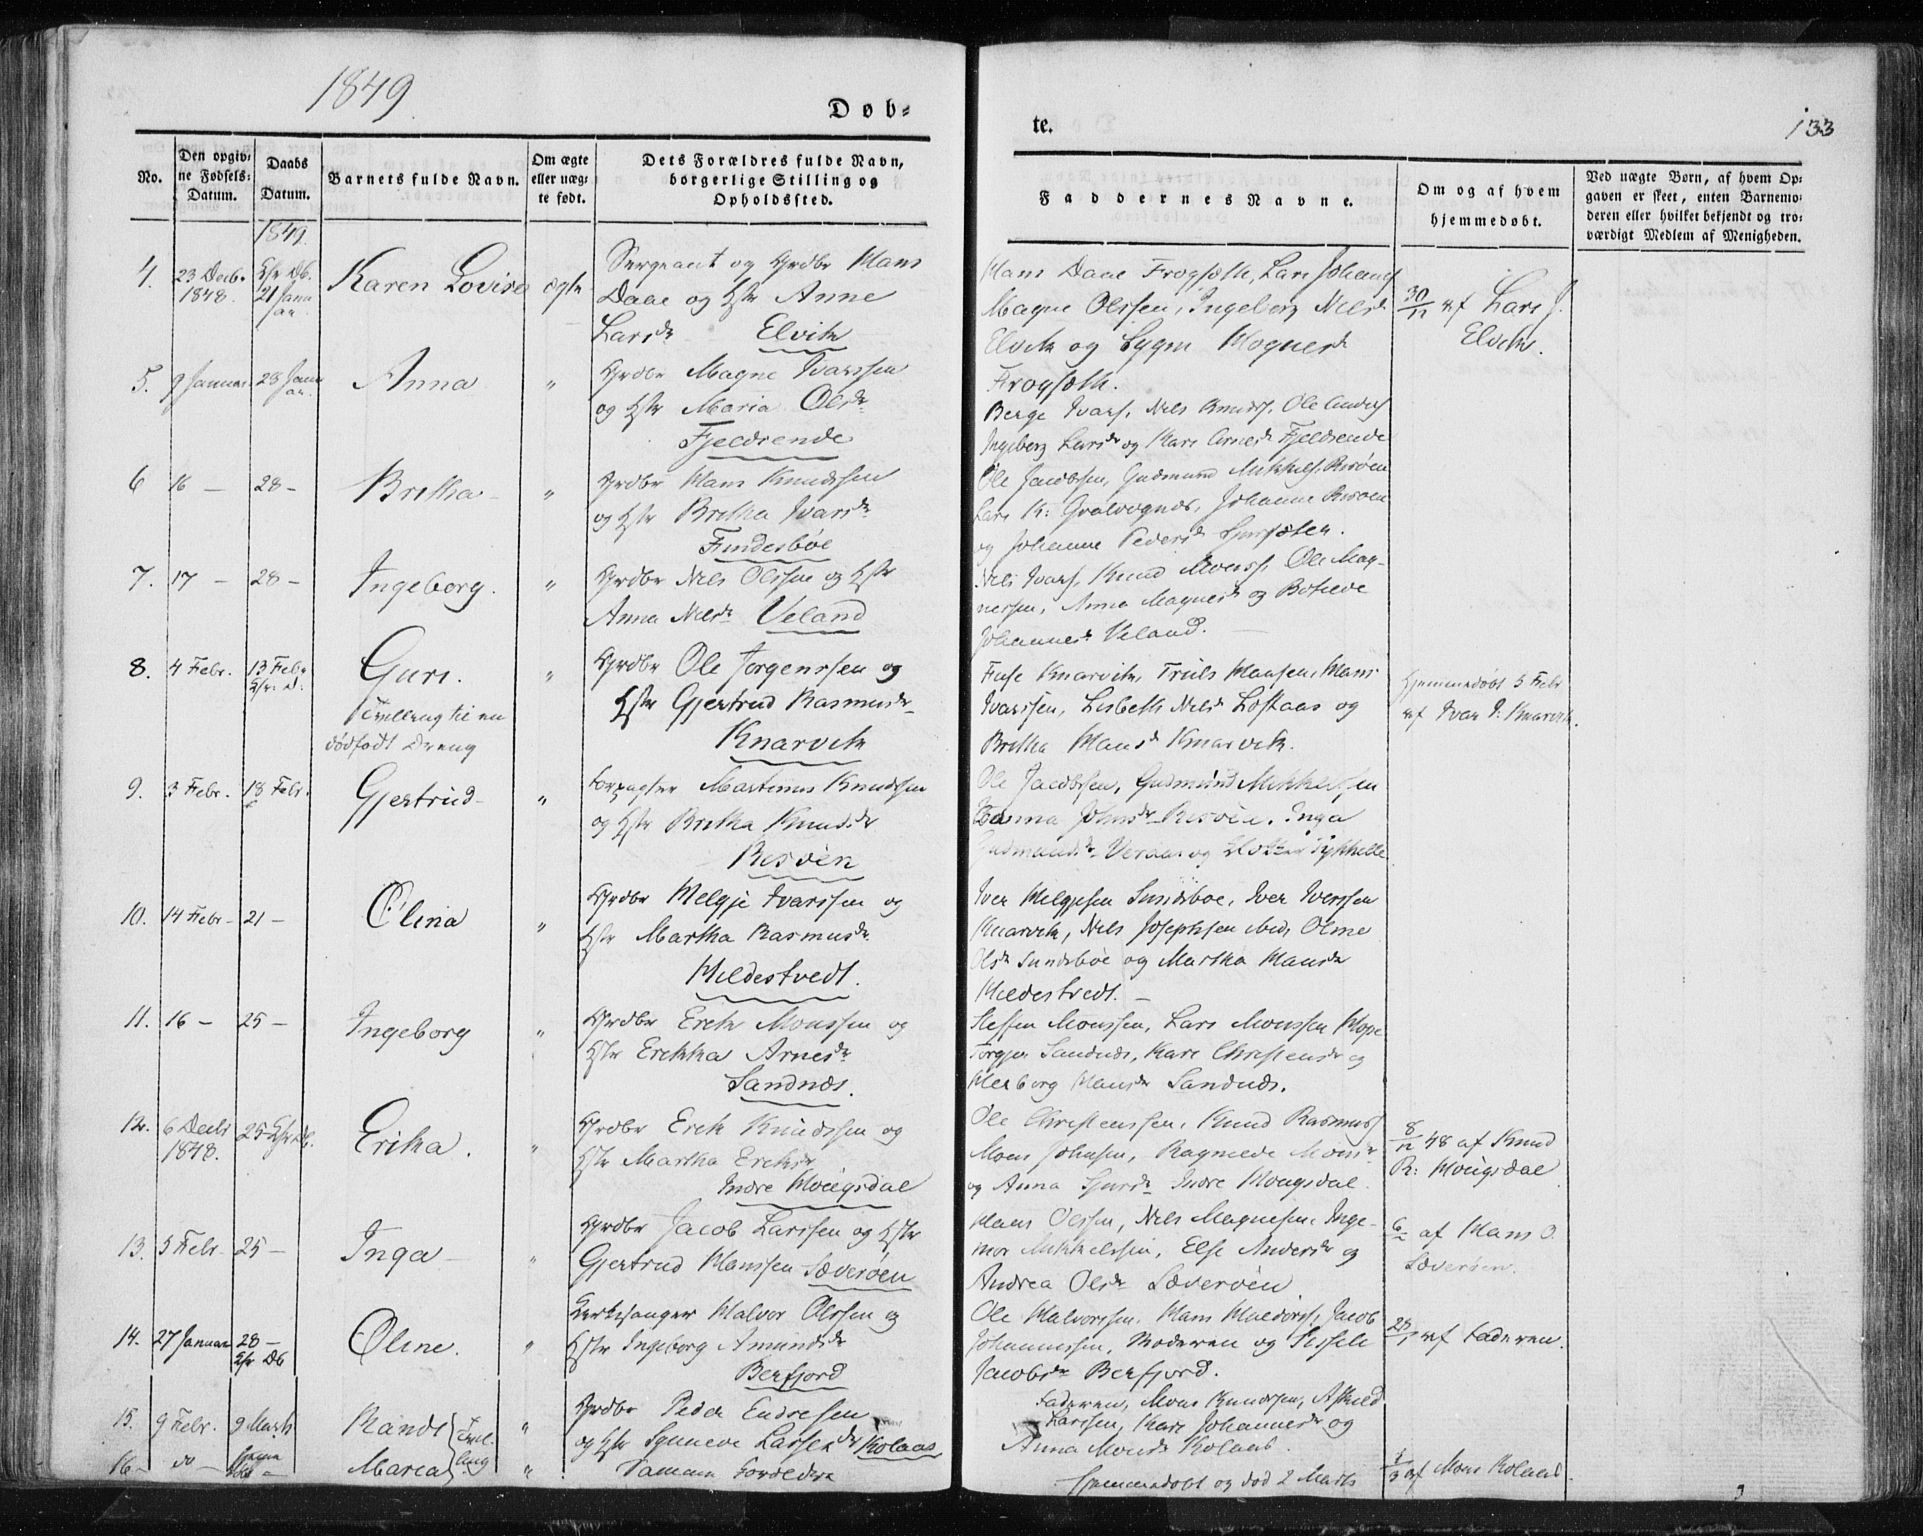 1849
Døb-
te.
133
No.
Den opgiv-
ne Fødsels-
Datum.
Daabs
Datum.
Barnets fulde Navn.
Om ægte
eller uæg-
te født.
Dets Forældres fulde Navn,
borgerlige Stilling og
Opholdssted.
Faddernes Navne.
Om og af hvem
hjemmedøbt.
Ved uægte Børn, af hvem Op-
gaven er skeet, enten Barnemo-
deren eller hvilket bekjendt og tro-
værdigt Medlem af Menigheden.
1849.
4. 23 Decbr 1848. 21 Januar Karen Lovise ægte
Sergeant og Grdbr Hans
Daae og Hstr Anne
Larsdr Elvik
Hans Daae Frogseth, Lars Johans
Magne Olssen, Ingeborg Nilsdr
Elvik og Sygni Mognesdr
Frogseth.
30/12 af Lars J.
Elvik.
5. 9 Januar 28 Januar Anna "
Grdbr Magne Ivarssen
og Hstr Maria Olsdr
Fjeldsende
Berge Ivars, Nils Knuds, Ole Anders
Ingeborg Larsdr og Kari Arnesdr Fjeldsende
6 16 — 28 — Britha — "
Grdbr Hans Knudssen
og Hstr Britha Ivarsdr
Findesbøe
Ole Jacobsen, Gudmund Mikkels Risøen
Lars K: Gvalvognæs, Johanne Risøen
og Johanne Pedersdr
7. 17 — 28 — Ingeborg. "
Grdbr Nils Olssen og Hstr
Anna Nilsdr Veland
Nils Ivars, Knud Monss, Ole Mag-
nessen, Anna Magnesdr og Botilde
Johannesdr Veland. —
8. 4 Febr. 13 Febr Guri. "
Tvilling til en
dødfødt Dreng
Grdbr Ole Jørgenssen og
Hstr Gjertrud Rasmusdr
Knarvik
Knarvik, Truls Hansen, Hans
Ivarssen, Lisbeth Nilsdr Loftaas og
Britha Hansdr Knarvik.
Hjemmedøbt 5 Febr
af Ivar I: Knarvik.
9. 3 Febr. 18 Febr. Gjertrud — "
Forpagter Martinus Knudssen
og Hstr Britha Knudsdr
Risøen
Ole Jacobssen, Gudmund Mikkelssen
Johnsdr Risøen, Inga
Gudmundsdr Veraas og
10. 14 Febr — 21 — Olina "
Grdbr Helgje Ivarssen og
Hstr Martha Rasmusdr
Hildestvedt.
Iver Helgjesen Sundsboe, Iver Iverssen
Knarvik, Nils Josephsen ibid, Oline
Olsdr Sundsbøe og Martha Hansdr
Hildestvedt. —
11. 16 — 25 — Ingeborg "
Grdbr Erik Monssen og
Hstr Erikka Arnesdr
Sandnæs.
Steffen Monssen, Lars Monssen Hope
Torgjer Sandnæs, Kari Christensdr og
Herborg Hansdr Sandnæs.
12. 6 Decbr 1848. 25 Erika. "
Grdbr Erik Knudssen og
Hstr Martha Eriksdr
Indre Hougsdal
Ole Christenssen, Knud Rasmuss
Mons Johnsen, Ragnilde Monsdr
og Anna Sjursdr Indre Hougsdal.
8/12 48 af Knud
R: Hougsdal
13. 5 Febr — 25 — Inga — "
Grdbr Jacob Larssen og Hstr
Gjertrud Hanssen Sæverøen
Hans Olssen, Nils Magnesen, Inge-
mor Mikkelssen, Else Andersdr og
Andrea Olsdr Sæverøen
af Hans O.
Sæverøen.
14. 27 Januar 28 — Oline. "
Kirkesanger Halvor Olssen og
Hstr Ingeborg Amundsdr
Berfjord
Ole Halvorssen, Hans Haldors, Jacob
Johannessen, Moderen og Sissele
Jacobsdr Berfjord.
28/1 af Faderen.
15. 9 Febr. 9 Marts Randi "
Tvil-
ling
Grdbr Peder Endresen
og Hstr Synneve Larssendr Kolaas
Faderen, Mons Knudssen, Askild
Larssen, Kari Johannesdr og
Anna Monsdr Kolaas.
16 — do — Maria "
Samme Forældre
Hjemmedøbt og død 2 Marts
1/3 af Mons Kolaas.